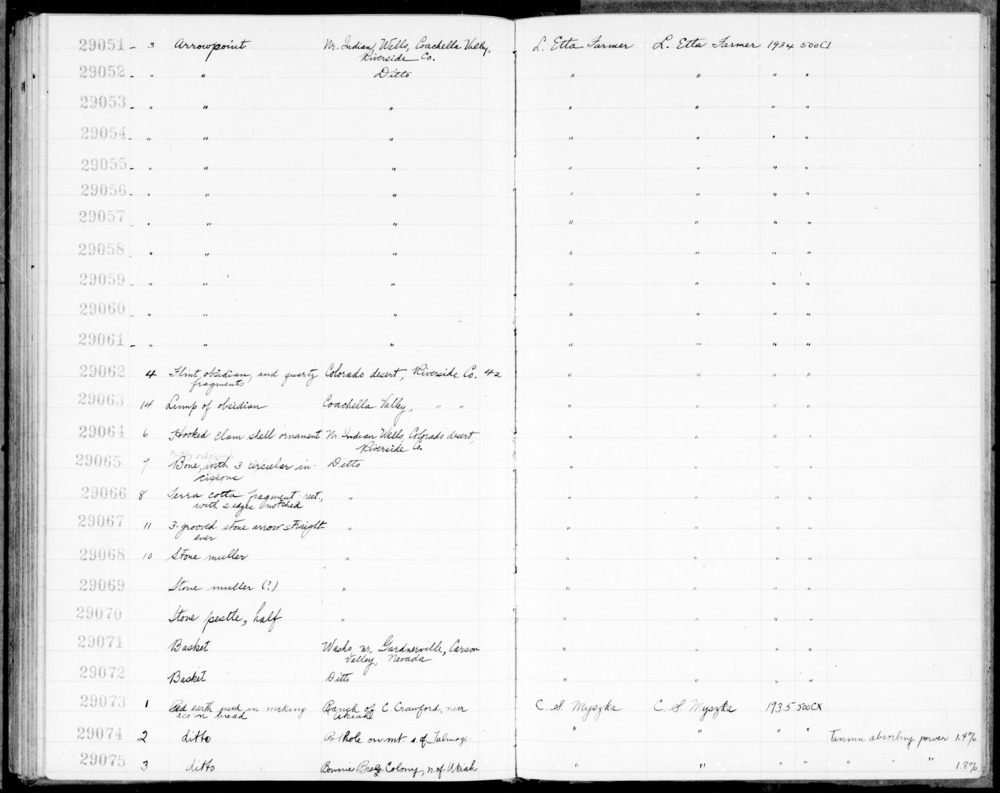 29051 3 Arrowpoint Nr. Indian Wells, Coachella Valley, L. Etta Farmer L. Etta Farmer 1934 500CI
Riverside Co.
29052 " " Ditto " " " "
29053 " " " " " " "
29054 " " " " " " "
29055 " " " " " " "
29056 " " " " " " "
29057 " " " " " " "
29058 " " " " " " "
29059 " " " " " " "
29060 " " " " " " "
29061 " " " " " " "
29062 4 Flint, obsidian, and quartz Colorado desert, Riverside Co. 42 " " " "
fragments
29063 14 Lump of obsidian Coachella Valley, " " " " " "
29064 6 Hooked clam shell ornament Nr. Indian Wells, Colorado desert, " " " "
Riverside Co.
29065 7 Bone, with 3 circular in- Ditto " " " "
cisions
29066 8 Terra cotta fragment, rect., " " " " "
with 2 edges notched
29067 11 3-grooved stone arrow straight- " " " " "
ener
29068 10 Stone muller " " " " "
29069 Stone muller (?) " " " " "
29070 Stone pestle, half " " " "
29071 Basket Washo, nr. Gardnerville, Carson " " " "
Valley, Nevada
29072 Basket Ditto " " " "
29073 1 Red earth used in making Ranch of C Crawford, near C. S. Myszka C. S. Myszka 1935 500CX
acorn bread Ukiah
29074 2 ditto Pothole on mt. s. of Talmage " " " " Tannin absorbing power 1.4%
29075 3 ditto Bonnie Colony, n. of Ukiah " " " " " " " 1.8%